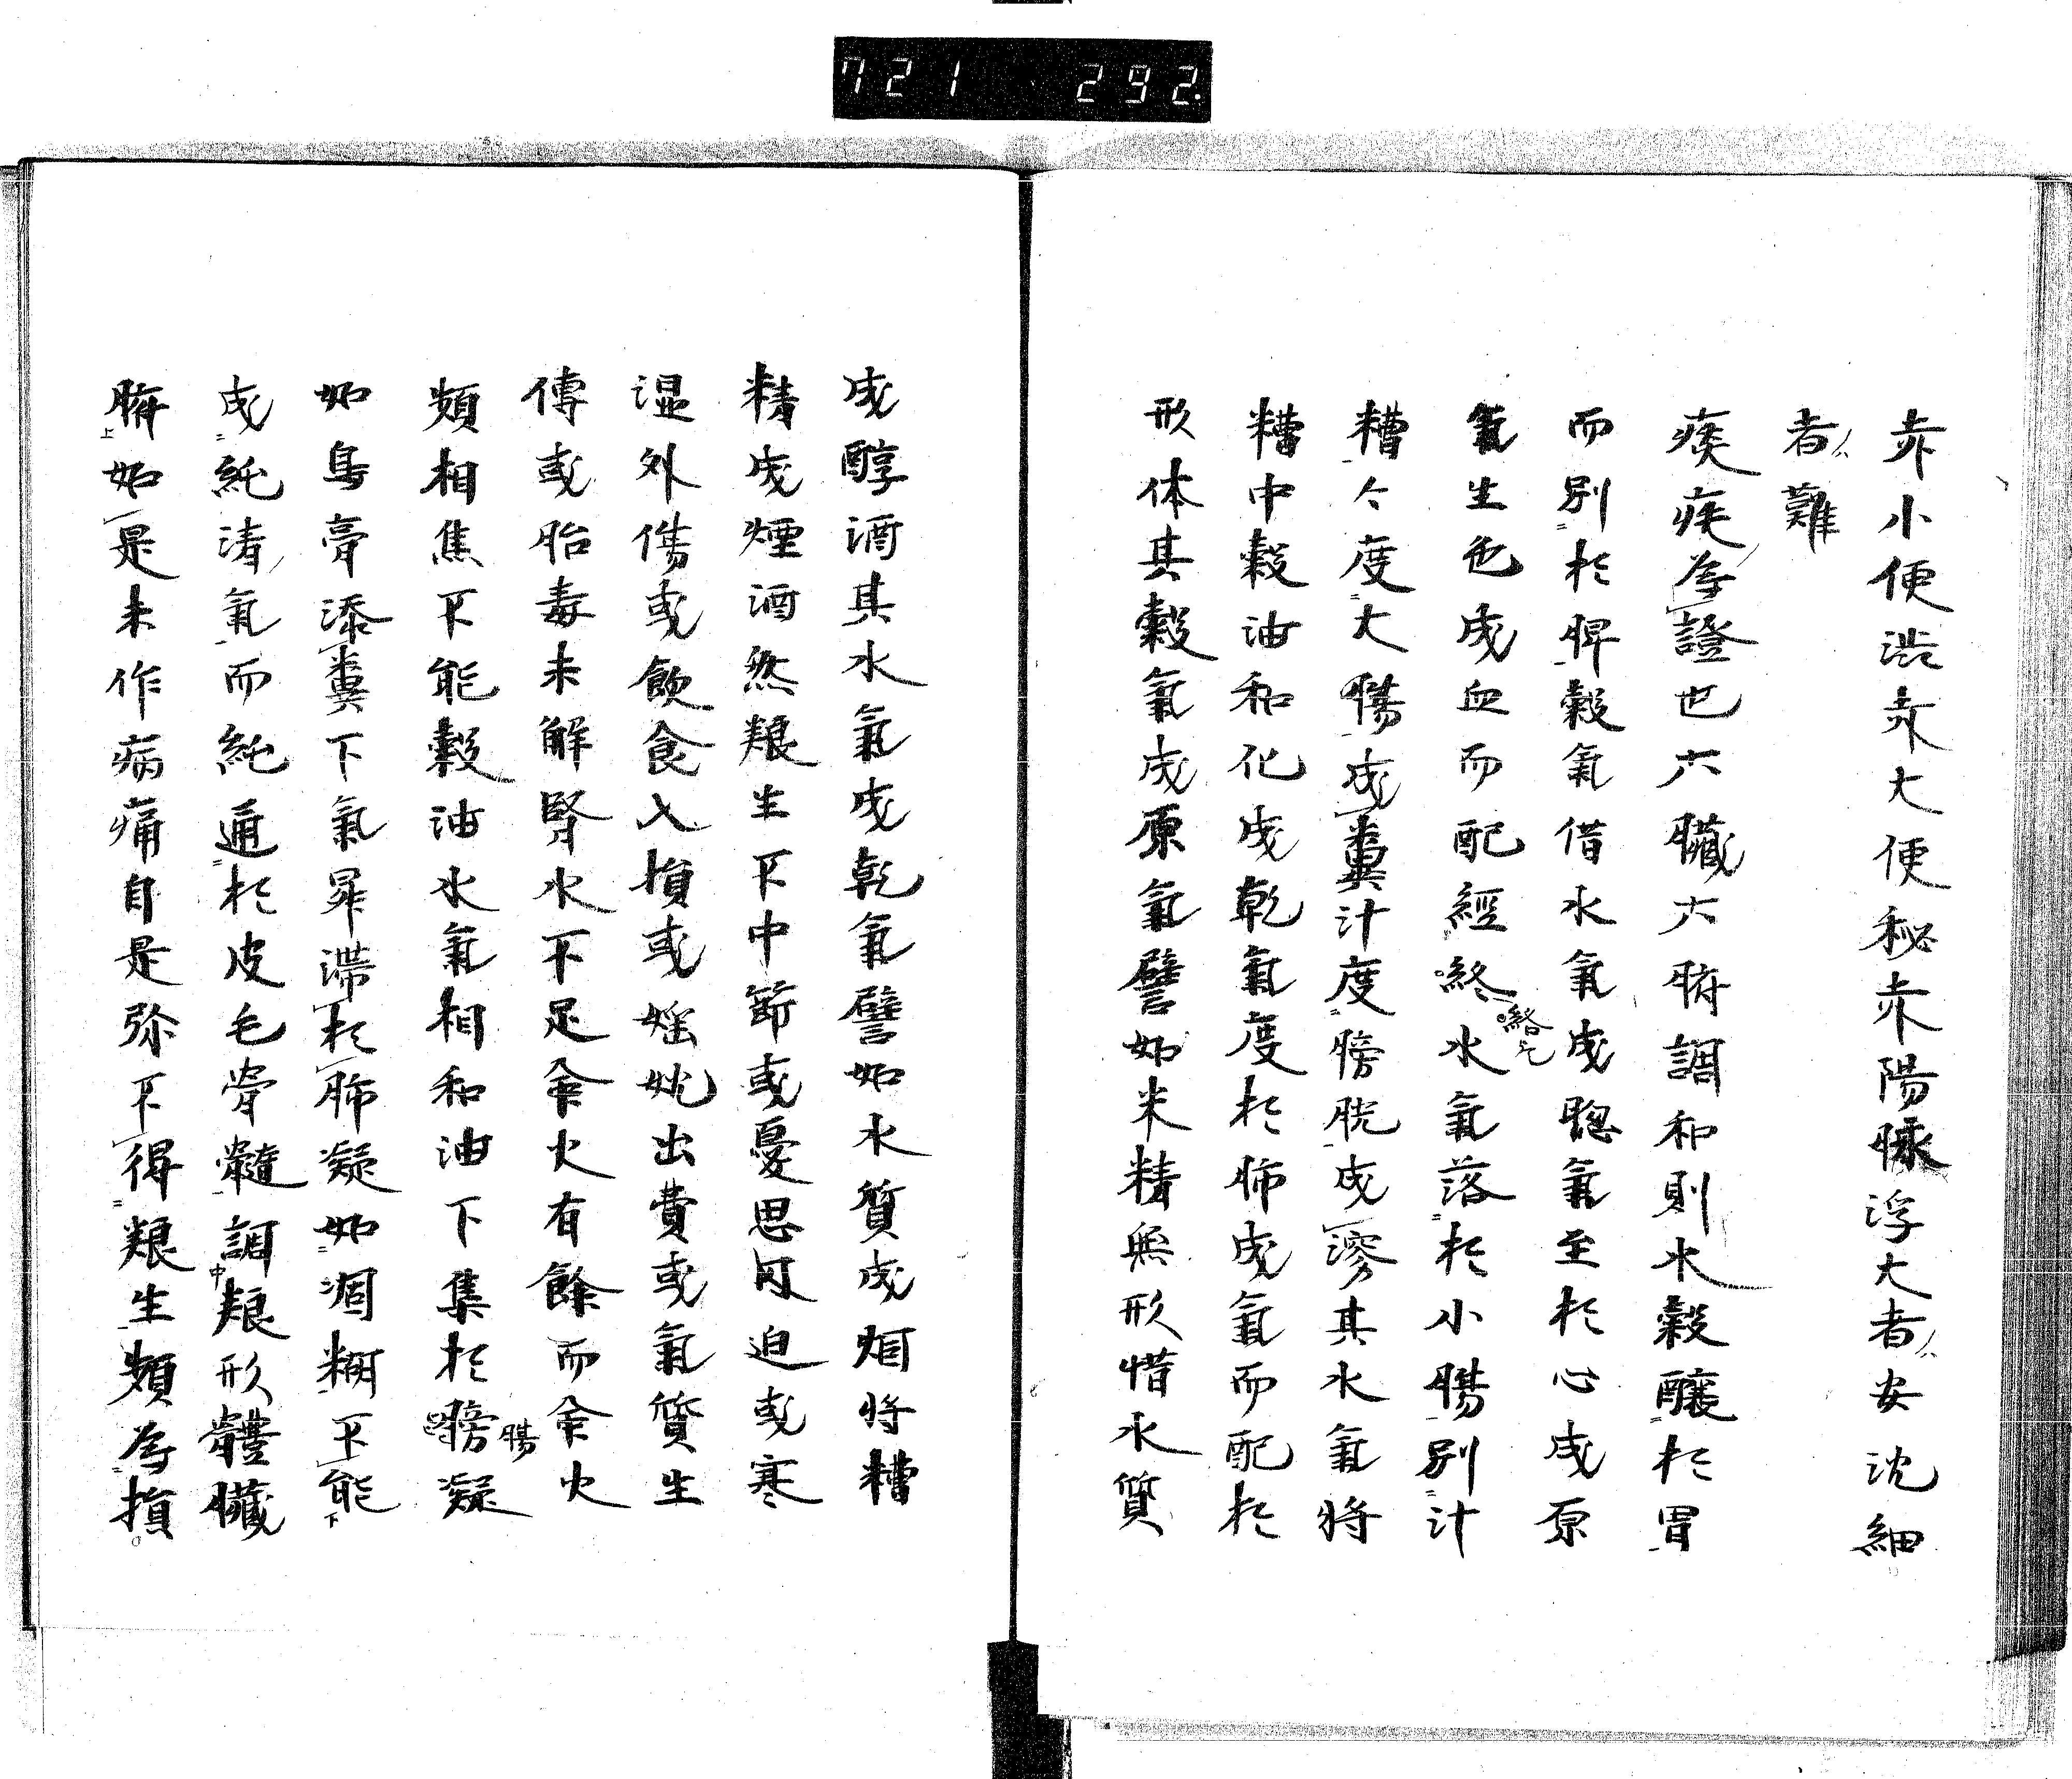 721 292.
赤小便澁赤大便秘赤陽脉浮大者安沈細
者難
痰疾為證也六臟六腑調和則水穀釀於胃
而別於脾穀氣借水氣成聰氣至於心成原
氣生色成血而配經 水氣落於小腸別汁
糟々度大腸成糞汁度膀胱成 其水氣將
糟中穀油和化成乾氣度於肺成氣而配於
形体其穀氣成原氣譬如米精無形惜水質
成醇酒其水氣成乾氣譬如水質成 將糟
精成煙酒然粮生不中節或憂思 迫或寒
湿外傷或飲食入損或婬 出費或氣質生
傳或胎毒未解腎水不足命火有餘而命火
頬相焦不能穀油水氣相和油下集於膀 凝
腸
如鳥膏添糞下氣 滯於肺凝如凅糊不能
下
成純清氣而純通於皮毛骨髓調粮形體臟
中
臍如是未作病痛自是弥不得粮生頬為損
上